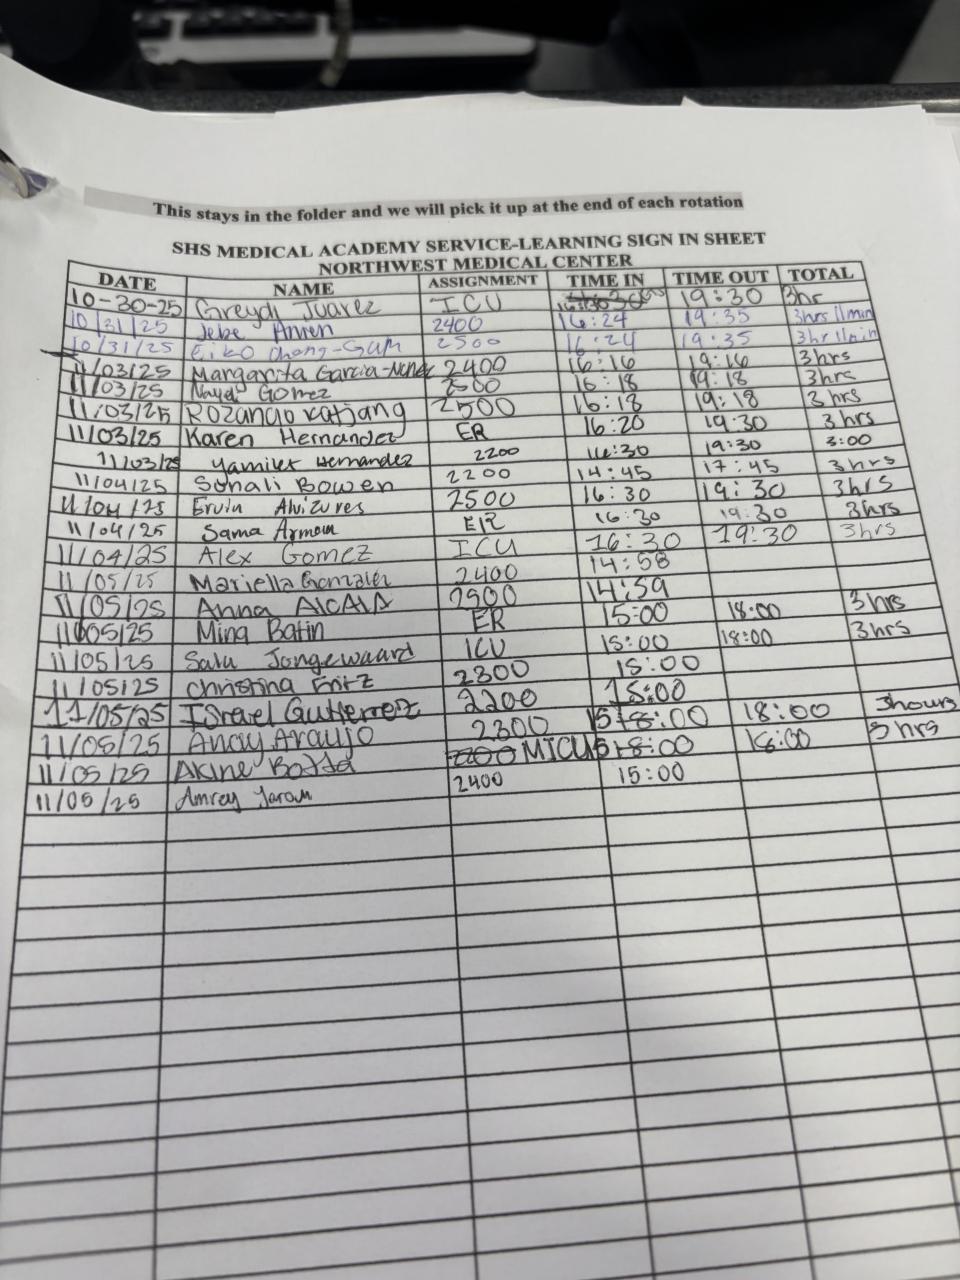 This stays in the folder and we will pick it up at the end of each rotation
SHS MEDICAL ACADEMY SERVICE-LEARNING SIGN IN SHEET
NORTHWEST MEDICAL CENTER
DATE NAME ASSIGNMENT TIME IN TIME OUT TOTAL
10-30-25 Greydi Juarez ICU 19:30 3hr
10/31/25 Jebe 2400 16:24 19:35 3hrs 11min
10/31/25 Eiko Chang-Gum 2500 16:24 19:35 3hr 11min
11/03/25 Margarita Garcia-Nunez 2400 16:16 19:16 3hrs
11/03/25 Gomez 2500 16:18 19:18 3hrs
11/03/25 2500 16:18 19:18 3 hrs
11/03/25 Karen Hernandez ER 16:20 19:30 3 hrs
11/03/25 Yamilet Hernandez 2200 16:30 19:30 3:00
11/04/25 Sonali Bowen 2200 14:45 17:45 3hrs
11/04/25 Ervin Alvizures 2500 16:30 19:30 3hrs
11/04/25 Sama ER 16:30 19:30 3hrs
11/04/25 Alex Gomez ICU 16:30 19:30 3hrs
11/05/25 Mariella Gonzalez 2400 14:58
11/05/25 Anna Alcala 14:59
11/05/25 Mina Batin ER 15:00 18:00 3hrs
11/05/25 Jongewaard ICU 15:00 18:00 3hrs
11/05/25 Christina Fritz 2300 15:00
11/05/25 Israel Gutierrez 2200 15:00
11/05/25 Anay Araujo 2300 18:00 3hours
11/05/25 MICU 18:00 3 hrs
11/05/25 Amrey 2400 15:00